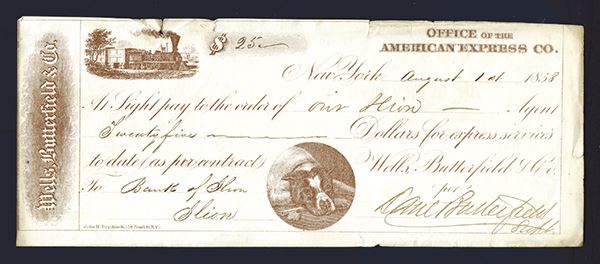 Wells, Butterfield & Co.
$ 25
OFFICE OF THE
AMERICAN EXPRESS CO.
New York August 1st 1853
At Sight pay to the order of our Ilion Agent
Twenty five Dollars for express services
to date (as per contract) Wells, Butterfield & Co.
To Bank of Ilion per
Ilion Danl Butterfield
Supt